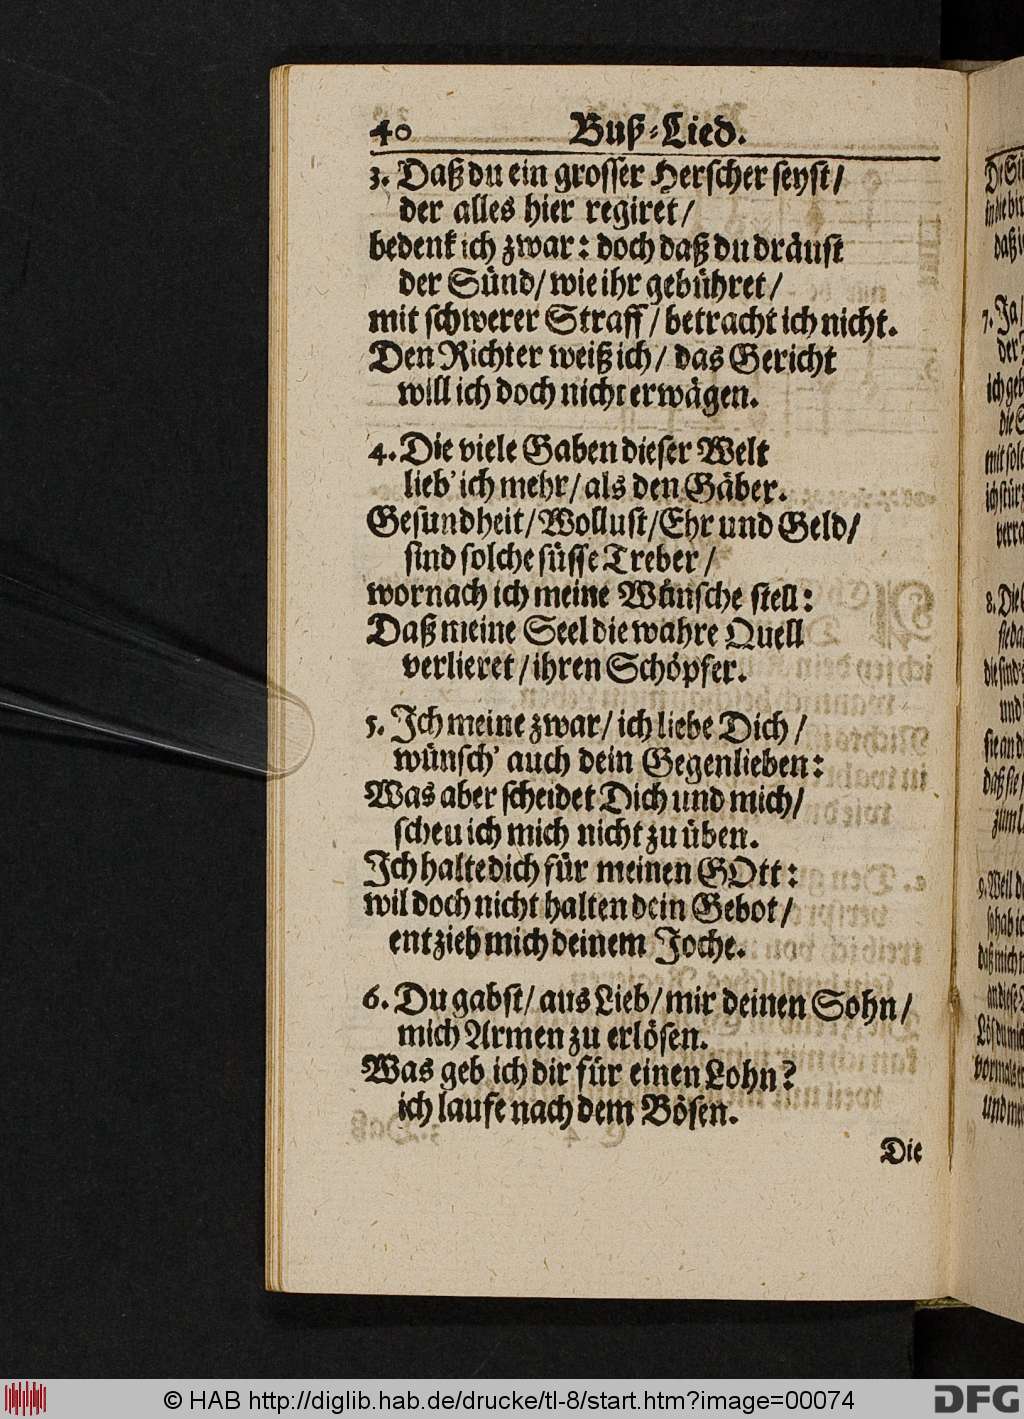 40 Buß-Lied.
3. Daß du ein grosser Herscher seyst/
der alles hier regiret/
bedenk ich zwar: doch daß du dräust
der Sünd/ wie ihr gebühret/
mit schwerer Straff/ betracht ich nicht.
Den Richter weiß ich/ das Gericht
will ich doch nicht erwägen.
4. Die viele Gaben dieser Welt
lieb' ich mehr/ als den Gäber.
Gesundheit/ Wollust/ Ehr und Geld/
sind solche süsse Treber/
wornach ich meine Wünsche stell:
Daß meine Seel die wahre Quell
verlieret/ ihren Schöpfer.
5. Ich meine zwar/ ich liebe Dich/
wünsch' auch dein Gegenlieben:
Was aber scheidet Dich und mich/
scheu ich mich nicht zu üben.
Ich halte dich für meinen GOtt:
wil doch nicht halten dein Gebot/
entzieh mich deinem Joche.
6. Du gabst/ aus Lieb/ mir deinen Sohn/
mich Armen zu erlösen.
Was geb ich dir für einen Lohn?
ich laufe nach dem Bösen.
Die
7. Ja/
8. Die
und
9. Weil
© HAB http://diglib.hab.de/drucke/tl-8/start.htm?image=00074
DFG